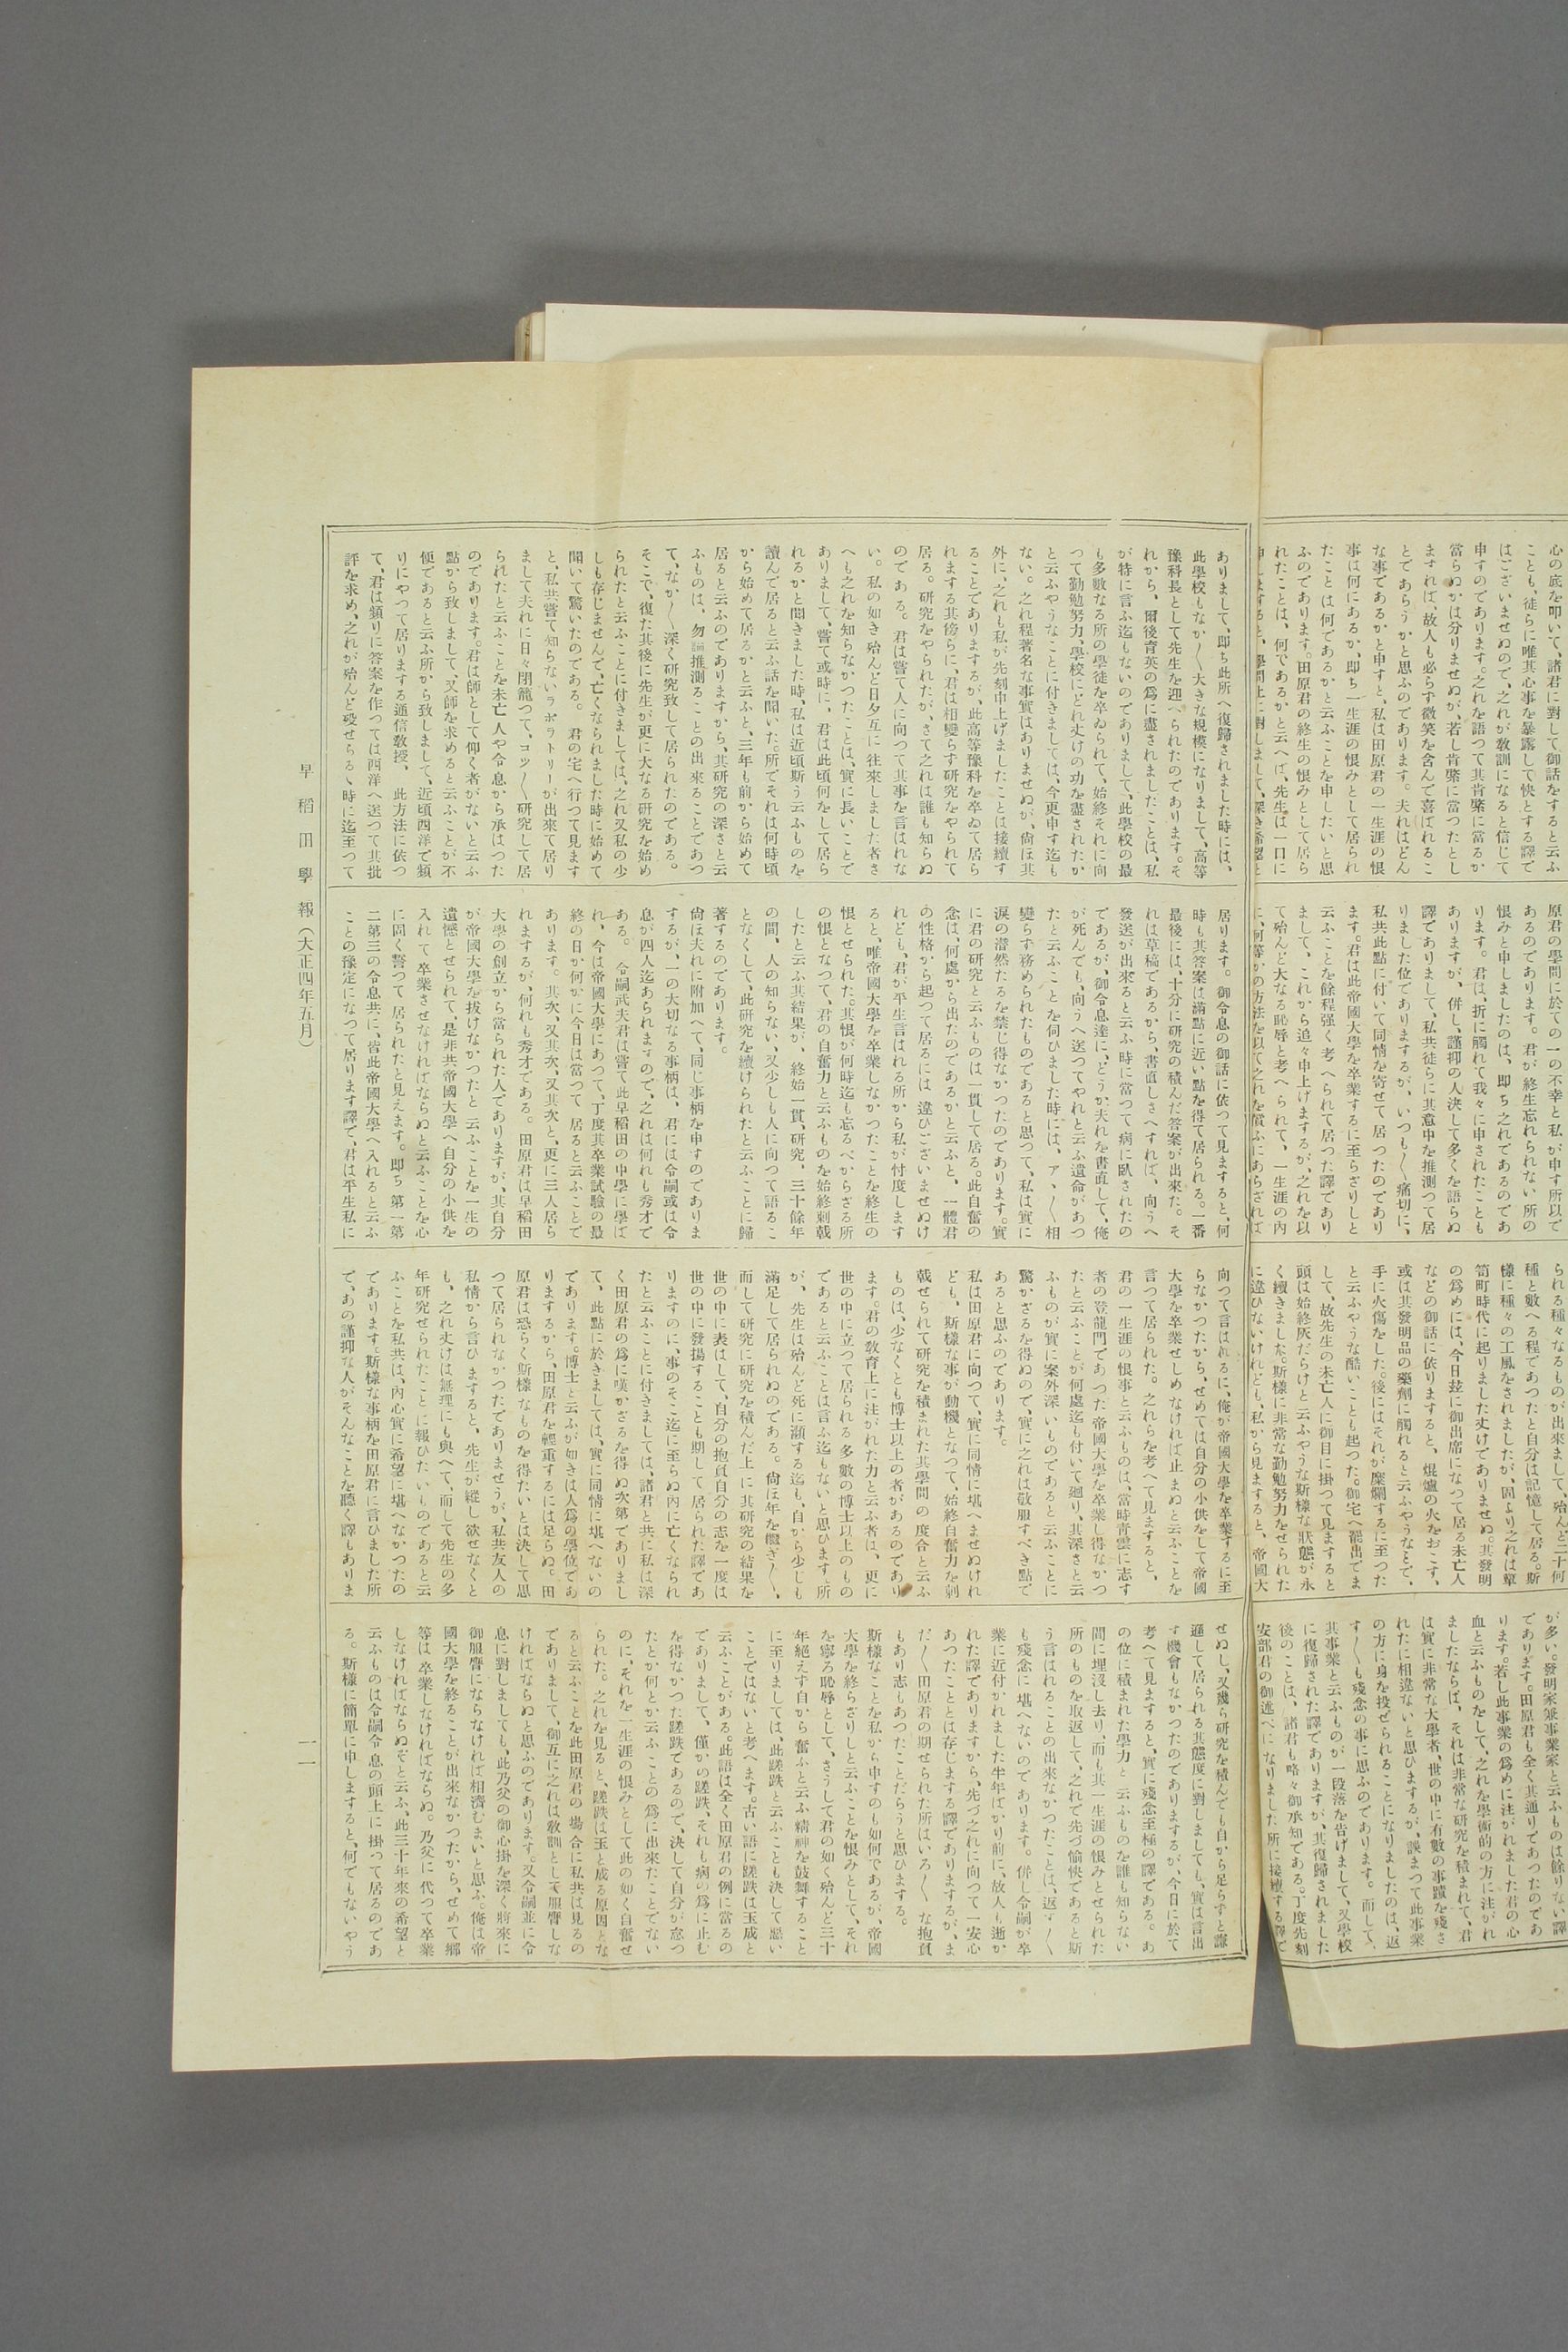 心の底を叩いて、諸君に對して御話をすると云ふ
ことも、徒らに唯其心事を暴露して快とする譯で
はございませぬので、之れが敎訓になると信じて
申すのであります。之れを語つて其肯綮に當るか
當らぬかは分りませぬが、若し肯綮に當つたとし
ますれば、故人も必らず微笑を含んで喜ばれるこ
とであらうかと思ふのであります。夫れはどん
な事であるかと申すと、私は田原君の一生涯の恨
事は何にあるか、即ち一生涯の恨みとして居られ
たことは何であるかと云ふことを申したいと思
ふのであります。田原君の終生の恨みとして居ら
れたことは、何であるかと云へば、先生は一口に
申しますると、學問上に對しまして、深き希望と
原君の學問に於ての一の不幸と私が申す所以で
あるのであります。君が終生忘れられない所の
恨みと申しましたのは、即ち之れであるのであ
ります。君は、折に觸れて我々に申されたことも
ありますが、併し、謹抑の人決して多くを語らぬ
譯でありまして、私共徒らに其意中を推測つて居
りました位でありまするが、いつも〱痛切に、
私共此點に付いて同情を寄せて居つたのであり
ます。君は此帝國大學を卒業するに至らざりしと
云ふことを餘程強く考へられて居つた譯であり
まして、これから追々申上げまするが、之れを以
て殆んど大なる恥辱と考へられて、一生涯の内
に、何等かの方法を以て之れを償ふにあらざれば
られる種々なるものが出來まして、殆んど二十何
種と數へる程であつたと自分は記憶して居る。斯
樣に種々の工風をされましたが、固より之れは簞
笥町時代に起りました丈けでありませぬ。其發明
の爲めには、今日茲に御出席になつて居る未亡人
などの御話に依りますると、焜爐の火をおこす、
或は其發明品の藥劑に觸れると云ふやうなとで、
手に火傷をした。後にはそれが糜爛するに至つた
と云ふやうな酷いことも起つた。御宅へ罷出でま
して、故先生の未亡人に御目に掛つて見ますると
頭は始終灰だらけと云ふやうな斯樣な狀態が永
く續きました。斯樣に非常な勤勉努力をせられた
に違ひないけれども、私から見ますると、帝國大
が多い。發明家兼事業家と云ふものは餘りない譯
であります。田原君も全く其通りであつたのであ
ります。若し此事業の爲めに注がれました君の心
血と云ふものをして、之れを學術的の方に注がれ
ましたならば、それは非常な研究を積まれて、君
は實に非常な大學者、世の中に有數の事蹟を殘さ
れたに相違ないと思ひますが、誤まつて此事業
の方に身を投ぜられることになりましたのは、返
す〱も殘念の事に思ふのであります。而して、
其事業と云ふものが一段落を吿げまして、又學校
に復歸された譯でありますが、其復歸されました
後のことは、諸君も略々御承知である。丁度先刻
安部君の御述べになりました所に接續する譯で
ありまして、即ち此所へ復歸されました時には、
此學校もなか〱大きな規模になりまして、高等
豫科長として先生を迎へられたのであります。そ
れから、爾後育英の爲に盡されましたことは、私
が特に言ふ迄もないのでありまして、此學校の最
も多數なる所の學徒を卒ゐられて、始終それに向
つて勤勉努力、學校にどれ丈けの功を盡されたか
と云ふやうなことに付きましては、今更申す迄も
ない。之れ程著名な事實はありませぬが、尙ほ其
外に、之れも私が先刻申上げましたことは接續す
ることでありまするが、此高等豫科を卒ゐて居ら
れまする其傍らに、君は相變らず研究をやられて
居る。研究をやられたが、さて之れは誰も知らぬ
のである。君は嘗て人に向つて其事を言はれな
い。私の如き殆んど日夕互に往來しました者さ
へも之れを知らなかつたことは、實に長いことで
ありまして、嘗て或時に、君は此頃何をして居ら
れるかと聞きました時、私は近頃斯う云ふものを
讀んで居ると云ふ話を聞いた。所でそれは何時頃
から始めて居るかと云ふと、三年も前から始めて
居ると云ふのでありますから、其研究の深さと云
ふものは、勿論推測ることの出來ることであつ
て、なか〱深く研究致して居られたのである。
そこで、復た其後に先生が更に大なる研究を始め
られたと云ふことに付きましては、之れ又私の少
しも存じませんで、亡くなられました時に始めて
聞いて驚いたのである。君の宅へ行つて見ます
と、私共嘗て知らないラボラトリーが出來て居り
まして夫れに日々閉籠つて、コツ〱研究して居
られたと云ふことを未亡人や令息から承はつた
のであります。君は師として仰く者がないと云ふ
點から致しまして、又師を求めると云ふことが不
便であると云ふ所から致しまして、近頃西洋で頻
りにやつて居りまする通信敎授、此方法に依つ
て、君は頻りに答案を作つては西洋へ送つて其批
評を求め、之れが殆んど歿せらるゝ時に迄至つて
居ります。御令息の御話に依つて見ますると、何
時も其答案は滿點に近い點を得て居られる。一番
最後には、十分に研究の積んだ答案が出來た。そ
れは草稿であるから、書直しさへすれば、向うへ
發送が出來ると云ふ時に當つて病に臥されたの
であるが、御令息達に、どうか夫れを書直して、俺
が死んでも、向うへ送つてやれと云ふ遺命があつ
たと云ふことを伺ひました時には、アヽ〱相
變らず務められたものであると思つて、私は實に
淚の潸然たるを禁じ得なかつたのであります。實
に君の研究と云ふものは一貫して居る。此自奮の
念は、何處から出たのであるかと云ふと、一體君
の性格から起つて居るには違ひございませぬけ
れども、君が平生言はれる所から私が忖度します
ると、唯帝國大學を卒業しなかつたことを終生の
恨とせられた。其恨が何時迄も忘るべからざる所
の恨となつて、君の自奮力と云ふものを始終刺戟
したと云ふ其結果が、終始一貫、研究、三十餘年
の間、人の知らない、又少しも人に向つて語るこ
となくして、此研究を續けられたと云ふことに歸
著するのであります。
尙ほ夫れに附加へて、同じ事柄を申すのでありま
するが、一の大切なる事柄は、君には令嗣或は令
息が四人迄あられますので、之れは何れも秀才で
ある。令嗣武夫君は嘗て此早稻田の中學に學ば
れ、今は帝國大學にあつて、丁度其卒業試驗の最
終の日か何かに今日は當つて居ると云ふことで
あります。其次、又其次、又其次と、更に三人居ら
れまするが、何れも秀才である。田原君は早稻田
大學の創立から當られた人でありますが、其自分
が帝國大學を拔けなかつたと云ふことを一生の
遺憾とせられて、是非共帝國大學へ自分の小供を
入れて卒業させなければならぬと云ふことを心
に固く誓つて居られたと見えます。即ち第一第
二第三の令息共に、皆此帝國大學へ入れると云ふ
ことの豫定になつて居ります譯で、君は平生私に
向つて言はれるに、俺が帝國大學を卒業するに至
らなかつたから、せめては自分の小供をして帝國
大學を卒業せしめなければ止まぬと云ふことを
言つて居られた。之れらを考へて見ますると、
君の一生涯の恨事と云ふものは、當時靑雲に志す
者の登龍門であつた帝國大學を卒業し得なかつ
たと云ふことが何處迄も付いて廻り、其深さと云
ふものが實に案外深いものであると云ふことに
驚かざるを得ぬので、實に之れは敬服すべき點で
あると思ふのであります。
私は田原君に向つて、實に同情に堪へませぬけれ
ども、斯樣な事が動機となつて、始終自奮力を刺
戟せられて研究を積まれた其學問の度合と云ふ
ものは、少なくとも博士以上の者があるのであり
ます。君の敎育上に注がれた力と云ふ者は、更に
世の中に立つて居られる多數の博士以上のもの
であると云ふことは言ふ迄もないと思ひます。所
が、先生は殆んど死に瀕する迄も、自から少しも
滿足して居られぬのである。尙ほ年を繼ぎ〱、
而して研究に研究を積んだ上に其研究の結果を
世の中に表はして、自分の抱負自分の志を一度は
世の中に發揚することも期して居られた譯であ
りますのに、事のそこ迄に至らぬ內に亡くなられ
たと云ふことに付きましては、諸君と共に私は深
く田原君の爲に嘆かざるを得ぬ次第でありまし
て、此點に於きましては、實に同情に堪へないの
であります。博士と云ふが如きは人爲の學位であ
りまするから、田原君を輕重するには足らぬ。田
原君は恐らく斯樣なものを得たいとは決して思
つて居られなかつたでありませうが、私共友人の
私情から言ひますると、先生が縱し欲せなくと
も、之れ丈けは無理にも與へて、而して先生の多
年硏究せられたことに報ひたいものであると云
ふことを私共は、內心實に希望に堪へなかつたの
であります。斯樣な事柄を田原君に言ひました所
で、あの謹抑な人がそんなことを聽く譯もありま
せぬし、又幾ら研究を積んでも自から足らずと謙
遜して居られる其態度に對しましても、實は言出
す機會もなかつたのでありまするが、今日に於て
考へて見ますると、實に殘念至極の譯である。あ
の位に積まれた學力と云ふものを誰も知らない
間に埋沒し去り、而も其一生涯の恨みとせられた
所のものを取返して、之れで先づ愉快であると斯
う言はれることの出來なかつたことは、返す〱
も殘念に堪へないのであります。併し令嗣が卒
業に近付かれました半年ばかり前に、故人も逝か
れた譯でありますから、先づ之れに向つて一安心
あつたこととは存じまする譯でありますが、ま
だ〱田原君の期せられた所はいろ〱な抱負
もあり志もあつたことだらうと思ひまする。
斯樣なことを私から申すのも如何であるが、帝國
大學を終らざりしと云ふことを恨みとして、それ
を寧ろ恥辱として、さうして君の如く殆んど三十
年絕えず自から奮ふと云ふ精神を鼓舞すること
に至りましては、此蹉跌と云ふことも決して惡い
ことではないと考へます。古い語に蹉跌は玉成と
云ふことがある。此語は全く田原君の例に當るの
でありまして、僅かの蹉跌、それも病の爲に止む
を得なかつた蹉跌であるので、決して自分が怠つ
たとか何とか云ふことの爲に出來たことでない
のに、それを一生涯の恨みとして此の如く自奮せ
られた。之れを見ると、蹉跌は玉と成る原因とな
ると云ふことを此田原君の場合に私共は見るの
でありまして、御互に之れは敎訓として服膺しな
ければならぬと思ふのであります。又令嗣並に令
息に對しましても、此乃父の御心掛を深く將來に
御服膺にならなければ相濟むまいと思ふ。俺は帝
國大學を終ることが出來なかつたから、せめて鄕
等は卒業しなければならぬ。乃父に代つて卒業
しなければならぬぞと云ふ、此三十年來の希望と
云ふものは令嗣令息の頭上に掛つて居るのであ
る。斯樣に簡單に申しますると、何でもないやう
早稻田學報（大正四年五月）
一一